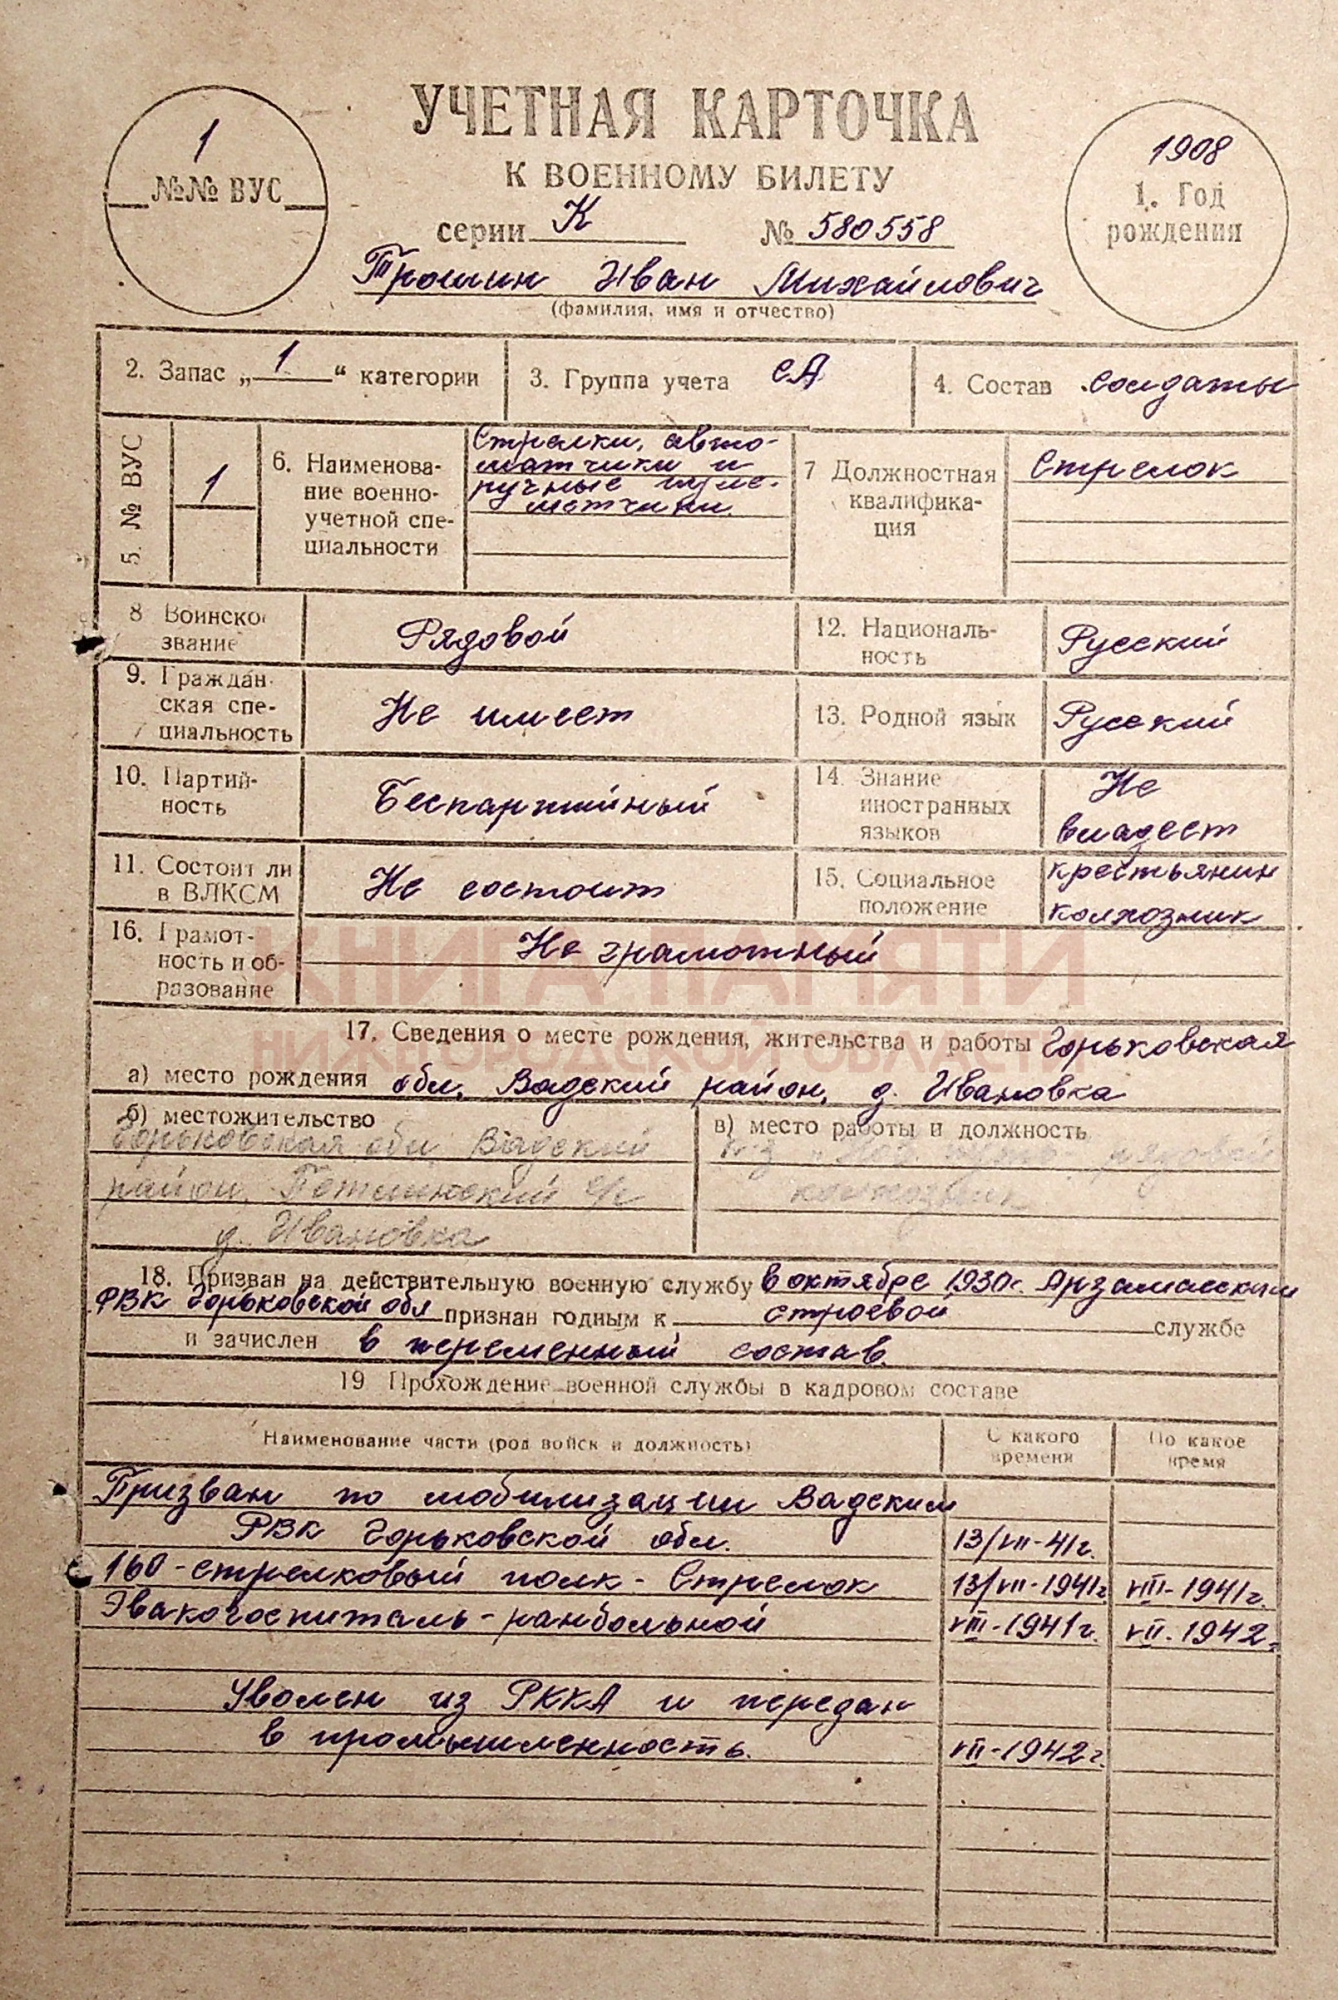 УЧЕТНАЯ КАРТОЧКА
К ВОЕННОМУ БИЛЕТУ
1
№№ ВУС
1908
1. Год
рождения
серии К № 580558
Трошин Иван Михайлович
(фамилия, имя и отчество)
2. Запас „ 1 “ категории
3. Группа учета СА
4. Состав солдаты
5. № ВУС
1
6. Наименова-
ние военно-
учетной спе-
циальности
Стрелки, авто-
матчики и
ручные пуле-
метчики.
7 Должностная
квалифика-
ция
Стрелок
8 Воинско
звание
Рядовой
12. Националь-
ность
Русский
9. Граждан-
ская спе-
циальность
Не имеет
13. Родной язык
Русский
10. Партий-
ность
Беспартийный
14. Знание
иностранных
языков
Не
владеет
11. Состоит ли
в ВЛКСМ
Не состоит
15. Социальное
положение
крестьянин
колхозник
16. Грамот-
ность и об-
разование
Не грамотный
КНИГА ПАМЯТИ
НИЖЕГОРОДСКОЙ ОБЛАСТИ
17. Сведения о месте рождения, жительства и работы Горьковская
а) место рождения обл. Вадский район, д. Ивановка
б) местожительство
Горьковская обл Вадский
район, с/с
д. Ивановка
в) место работы и должность
рядовой
колхозник
18. Призван на действительную военную службу в октябре 1930г. Арзамасским
РВК Горьковской обл признан годным к строевой службе
и зачислен в переменный состав.
19 Прохождение военной службы в кадровом составе
Наименование части (род войск и должность)
С какого
времени
По какое
время
Призван по мобилизации Вадским
РВК Горьковской обл. 13/VII-41г.
160-стрелковый полк - Стрелок 13/VII-1941г VIII-1941г.
Эвакогоспиталь - ранбольной VIII-1941г. VII.1942г
Уволен из РККА и передан
в промышленность. VII-1942г.